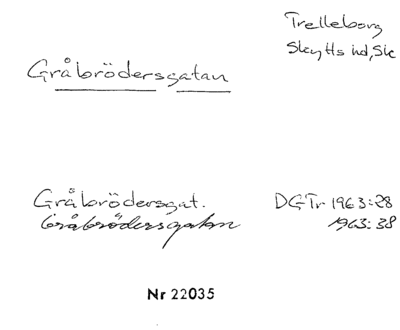 Trelleborg
Skytts hd, Sk
Gråbrödersgatan
Gråbrödersgat. DGTr 1963:28
Gråbrödersgatan 1963:38
Nr 22035